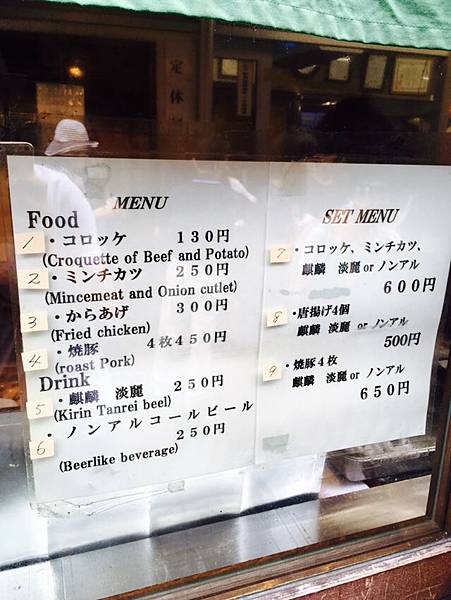 定休
MENU
Food
1 ・コロッケ 130円
(Croquette of Beef and Potato)
2 ・ミンチカツ 250円
(Mincemeat and Onion cutlet)
3 ・からあげ 300円
(Fried chicken)
4 ・焼豚 4枚450円
(roast Pork)
Drink
5 ・麒麟 淡麗 250円
(Kirin Tanrei beel)
6 ・ノンアルコールビール
250円
(Beerlike beverage)
SET MENU
7 ・コロッケ、ミンチカツ、
麒麟 淡麗 or ノンアル
600円
8 ・唐揚げ4個
麒麟 淡麗 or ノンアル
500円
9 ・焼豚4枚
麒麟 淡麗 or ノンアル
650円